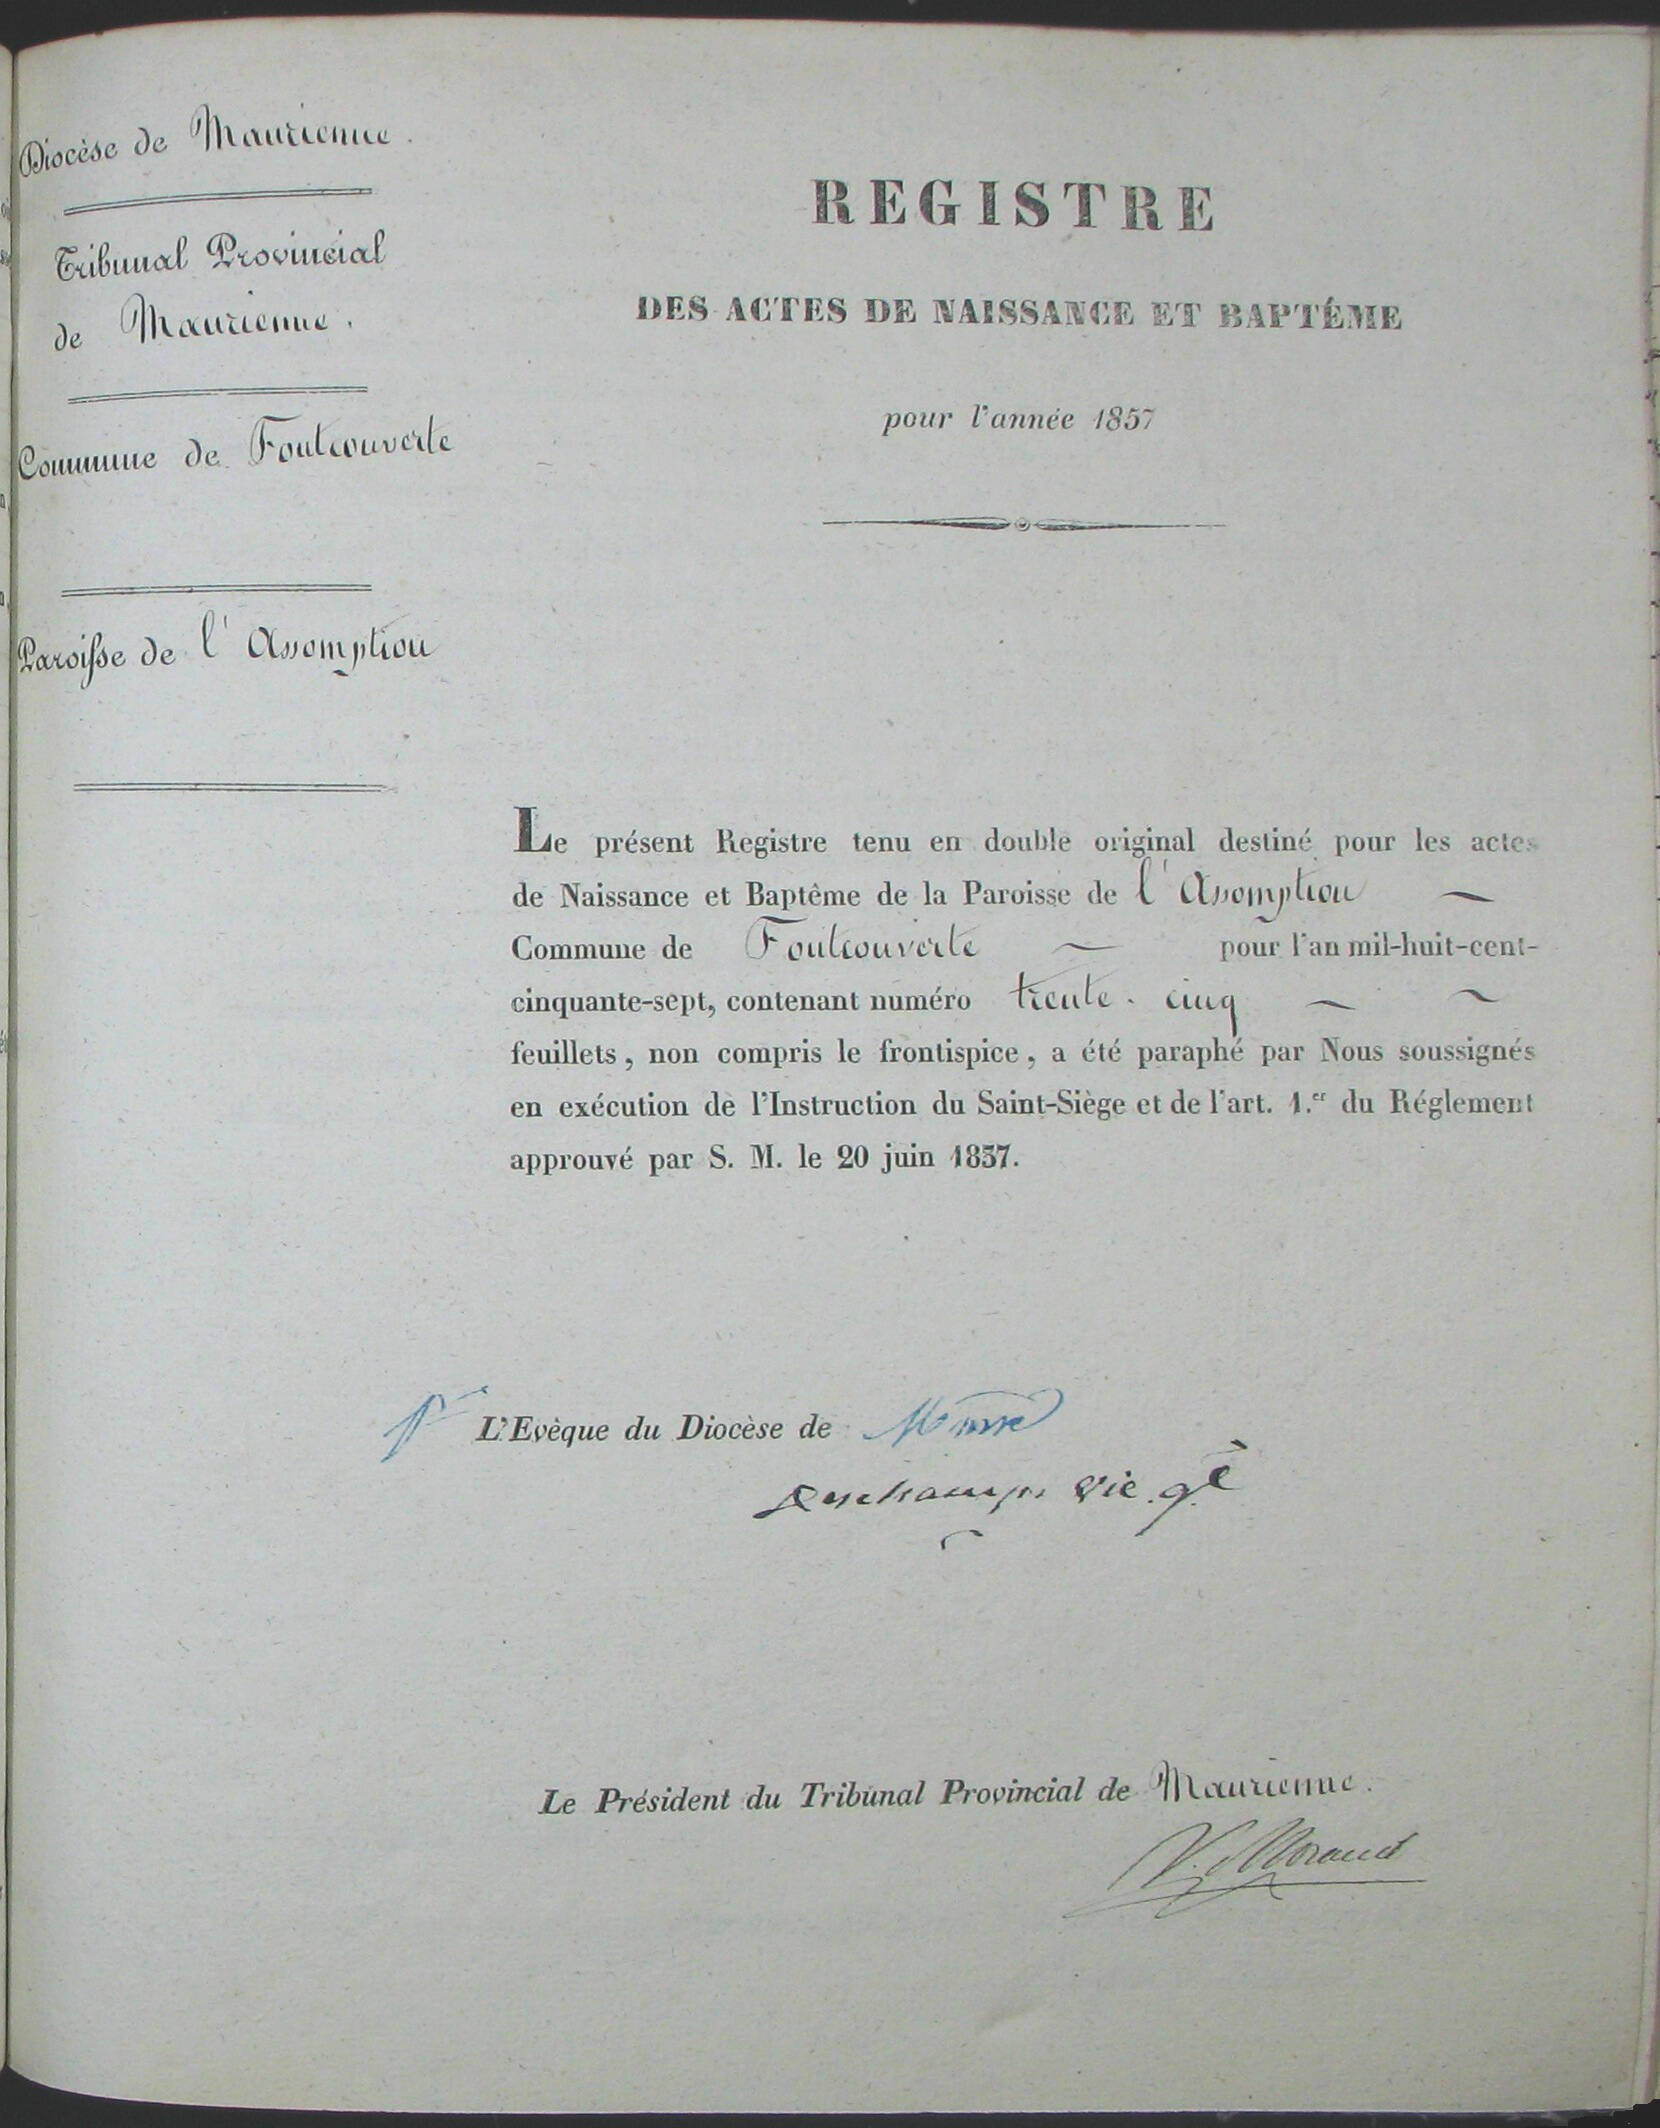 Diocèse de Maurienne.
Tribunal Provincial
de Maurienne.
Commune de Fontcouverte
Paroisse de l'Assomption
REGISTRE
DES ACTES DE NAISSANCE ET BAPTÉME
pour l'année 1857
Le présent Registre tenu en double original destiné pour les actes
de Naissance et Baptême de la Paroisse de l'Assomption
Commune de Fontcouverte pour l'an mil-huit-cent-
cinquante-sept, contenant numéro trente-cinq
feuillets, non compris le frontispice, a été paraphé par Nous soussignés
en exécution de l'Instruction du Saint-Siège et de l'art. 1.er du Réglement
approuvé par S. M. le 20 juin 1837.
L'Evèque du Diocèse de
Deschamps Vic. gé
Le Président du Tribunal Provincial de Maurienne.